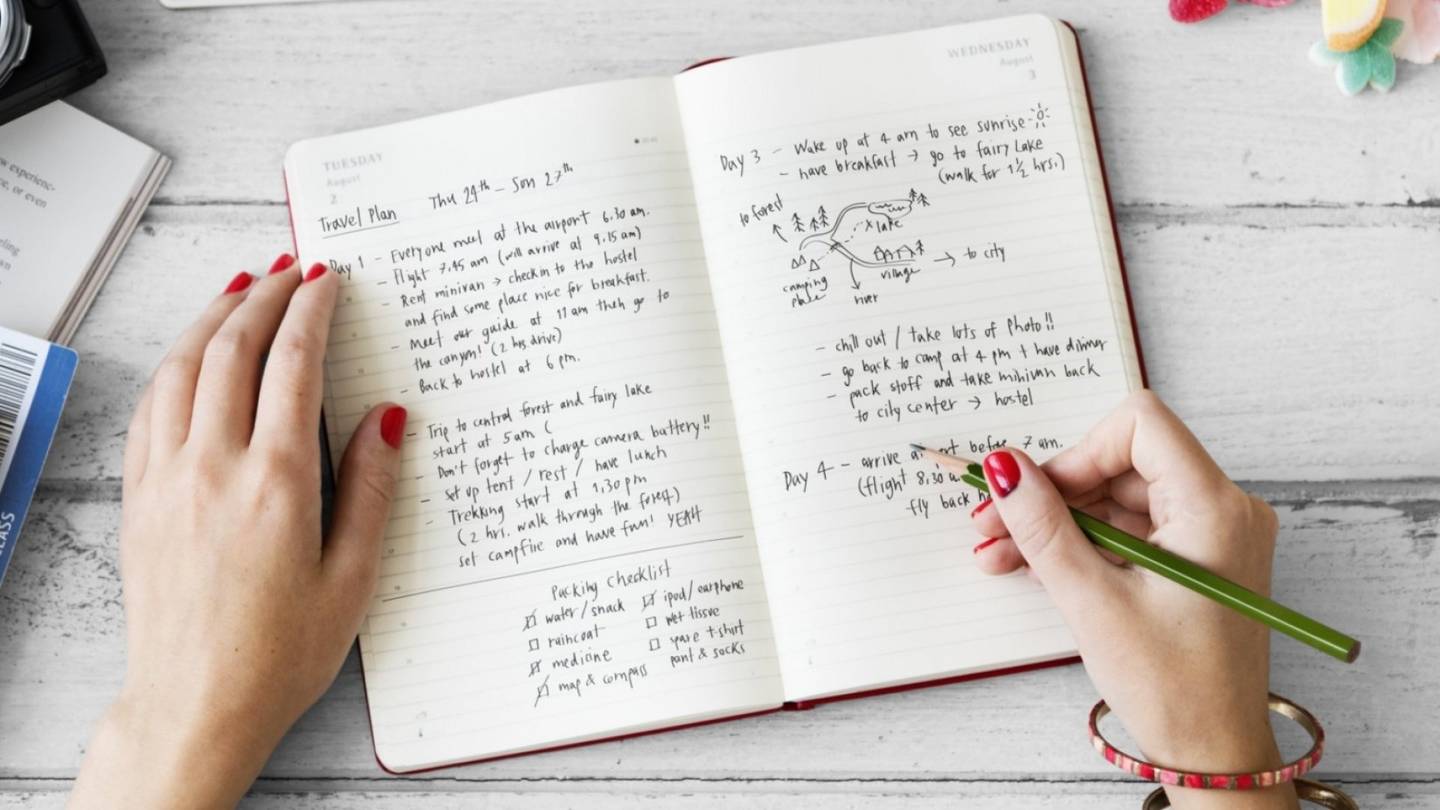 w experienc-
e, or even
eling
an
CLASS
TUESDAY
August
2
Thu 24th – Sun 27th
Travel Plan
Day 1 - Everyone meet at the airport 6.30 am.
- Flight 7.45 am (will arrive at 9.15 am)
- Rent minivan → check in to the hostel
and find some place nice for breakfast.
- Meet our guide at 11 am then go to
the canyon! (2 hrs drive)
- Back to hostel at 6 pm.
- Trip to central forest and fairy lake
start at 5 am (
- Don't forget to charge camera battery!!
- set up tent / rest / have lunch
- Trekking start at 1.30 pm
(2 hrs. walk through the forest)
set campfire and have fun! YEAH
Packing Checklist
water/snack
raincoat
medicine
map & compass
ipod/earphone
wet tissue
spare t-shirt
pant & socks
WEDNESDAY
August
3
Day 3 - Wake up at 4 am to see sunrise
- have breakfast → go to fairy Lake
(walk for 1½ hrs.)
to forest
x lake
→ to city
village
camping
place
river
- chill out / take lots of photo!!
- go back to camp at 4 pm + have dinner
- pack stuff and take minivan back
to city center → hostel
Day 4 - arrive before 7 am.
(flight 8.30
fly back